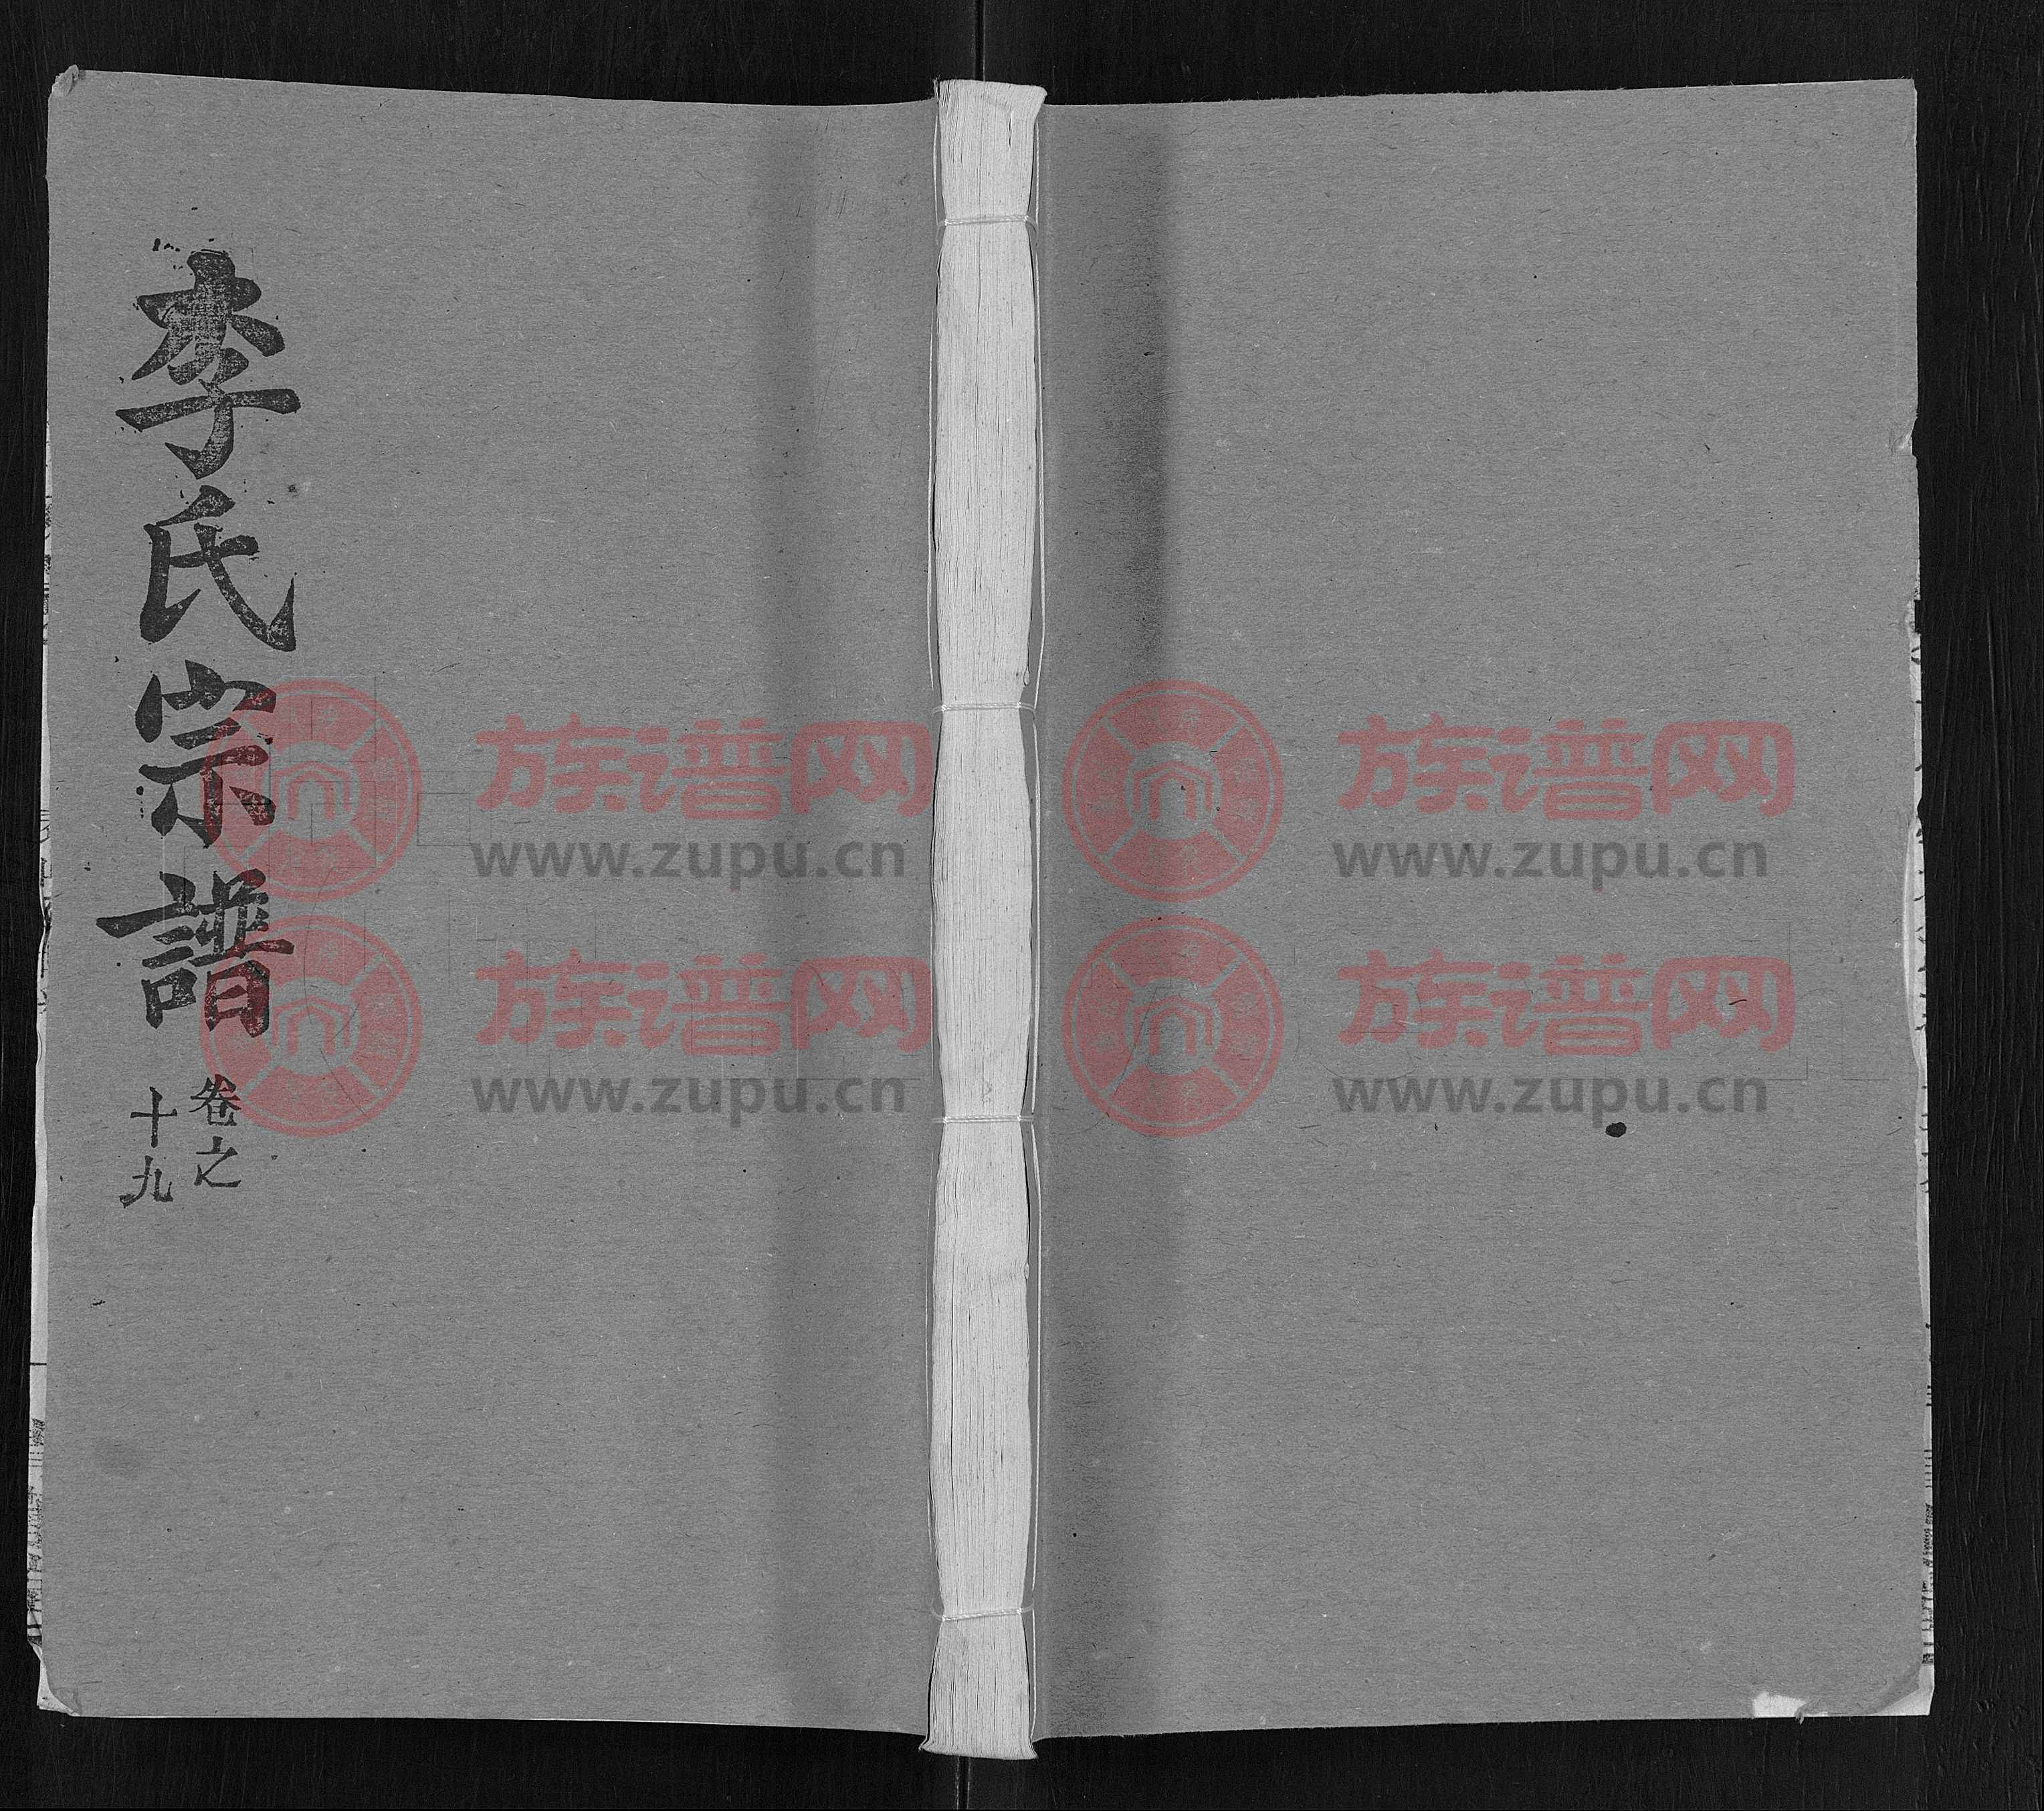 李氏宗譜
卷之
十九
族谱网 族谱网
www.zupu.cn www.zupu.cn
族谱网 族谱网
www.zupu.cn www.zupu.cn